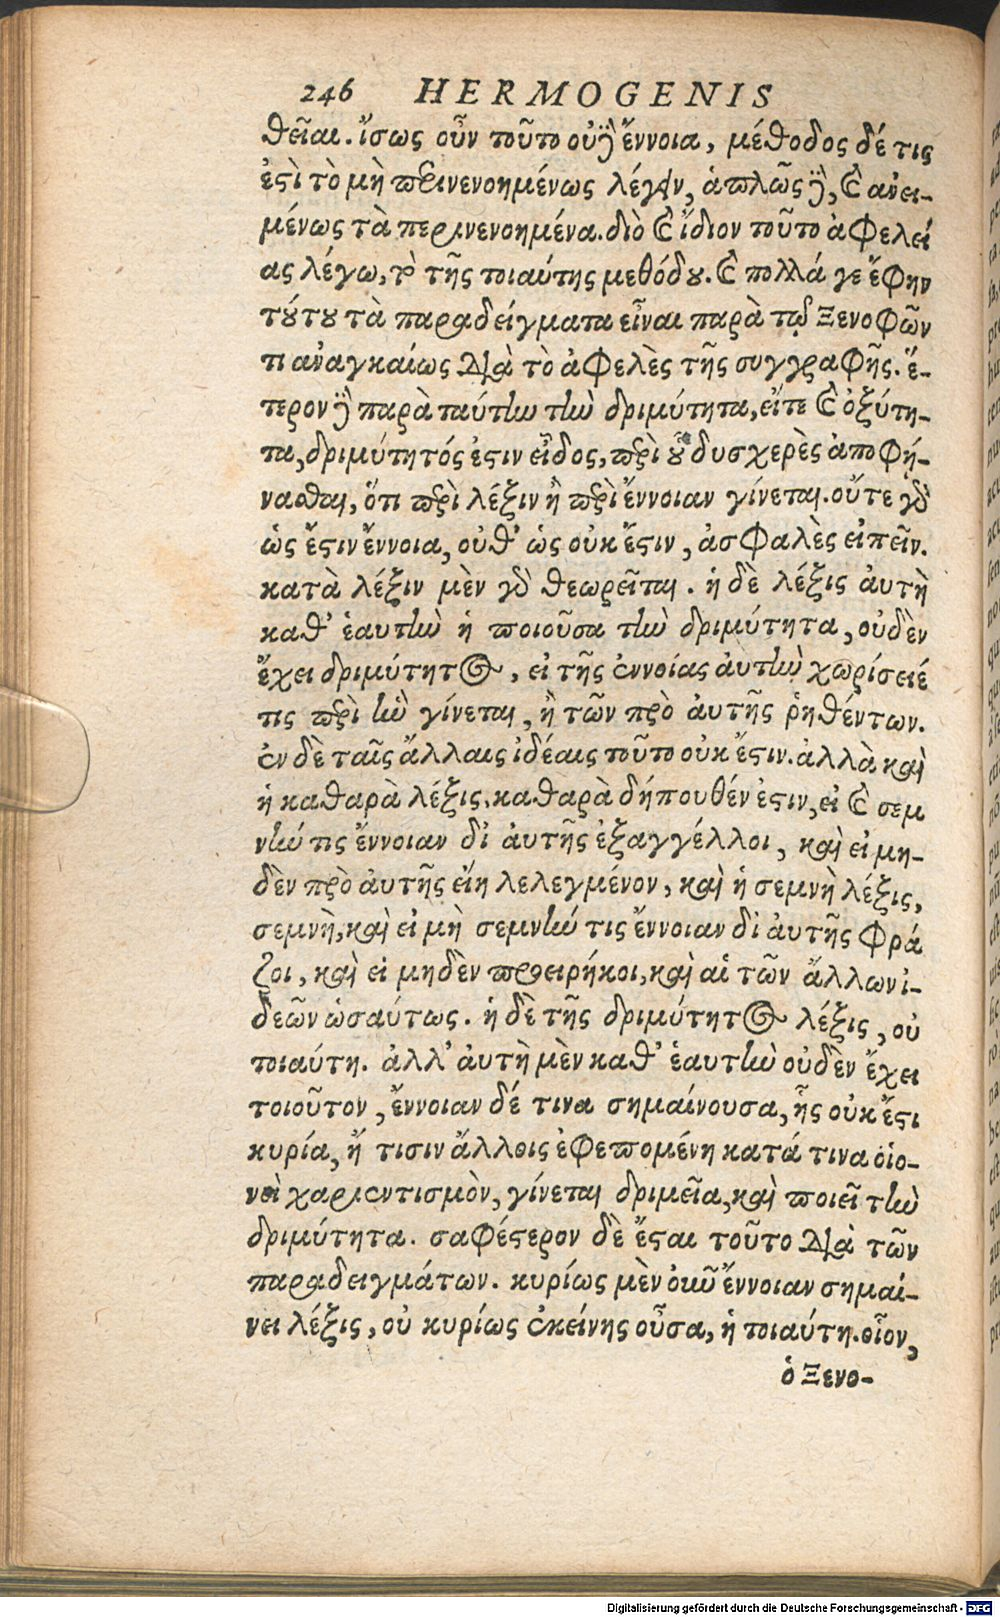 246 HERMOGENIS
θεῖαι. ἴσως οὖν τοῦτο οὐδ᾽ ἔννοια, μέθοδος δέ τις
ἐστὶ τὸ μὴ περινενοημένως λέγειν, ἁπλῶς δ᾽, καὶ ἀνει-
μένως τὰ περινενοημένα. διὸ καὶ ἴδιον τοῦτο ἀφελεί
ας λέγω, τὸ τῆς τοιαύτης μεθόδου. καὶ πολλά γε ἔφην
τούτου τὰ παραδείγματα εἶναι παρὰ τῷ Ξενοφῶν
τι ἀναγκαίως διὰ τὸ ἀφελὲς τῆς συγγραφῆς. ἕ-
τερον δ᾽ παρὰ ταύτην τὴν δριμύτητα, εἴτε καὶ ὀξύτη-
τα, δριμύτητός ἐστιν εἶδος, περὶ οὗ δυσχερὲς ἀποφή-
νασθαι, ὅτι περὶ λέξιν ἢ περὶ ἔννοιαν γίνεται. οὔτε γὰρ
ὡς ἔστιν ἔννοια, οὐθ᾽ ὡς οὐκ ἔστιν, ἀσφαλὲς εἰπεῖν.
κατὰ λέξιν μὲν γὰρ θεωρεῖται. ἡ δὲ λέξις ἀυτὴ
καθ᾽ ἑαυτὴν ἡ ποιοῦσα τὴν δριμύτητα, οὐδὲν
ἔχει δριμύτητος, εἰ τῆς ἐννοίας ἀυτὴν χωρίσειέ
τις περὶ ἣν γίνεται, ἢ τῶν πρὸ ἀυτῆς ῥηθέντων.
ἐν δὲ ταῖς ἄλλαις ἰδέαις τοῦτο οὐκ ἔστιν. ἀλλὰ καὶ
ἡ καθαρὰ λέξις, καθαρὰ δήπουθέν ἐστιν, εἰ καὶ σεμ
νήν τις ἔννοιαν δι᾽ ἀυτῆς ἐξαγγέλλοι, καὶ εἰ μη-
δὲν πρὸ ἀυτῆς εἴη λελεγμένον, καὶ ἡ σεμνὴ λέξις,
σεμνὴ, καὶ εἰ μὴ σεμνήν τις ἔννοιαν δι᾽ ἀυτῆς φρά
ζοι, καὶ εἰ μηδὲν προειρήκοι, καὶ αἱ τῶν ἄλλων ἰ-
δεῶν ὡσαύτως. ἡ δὲ τῆς δριμύτητος λέξις, οὐ
τοιαύτη. ἀλλ᾽ ἀυτὴ μὲν καθ᾽ ἑαυτὴν οὐδὲν ἔχει
τοιοῦτον, ἔννοιαν δέ τινα σημαίνουσα, ἧς οὐκ ἔστι
κυρία, ἤ τισιν ἄλλοις ἐφεπομένη κατά τινα οἱο-
νεὶ χαριεντισμὸν, γίνεται δριμεῖα, καὶ ποιεῖ τὴν
δριμύτητα. σαφέστερον δὲ ἔσται τοῦτο διὰ τῶν
παραδειγμάτων. κυρίως μὲν οὖν ἔννοιαν σημαί-
νει λέξις, οὐ κυρίως ἐκείνης οὖσα, ἡ τοιαύτη. οἷον,
ὁ Ξενο-
Digitalisierung gefördert durch die Deutsche Forschungsgemeinschaft - DFG